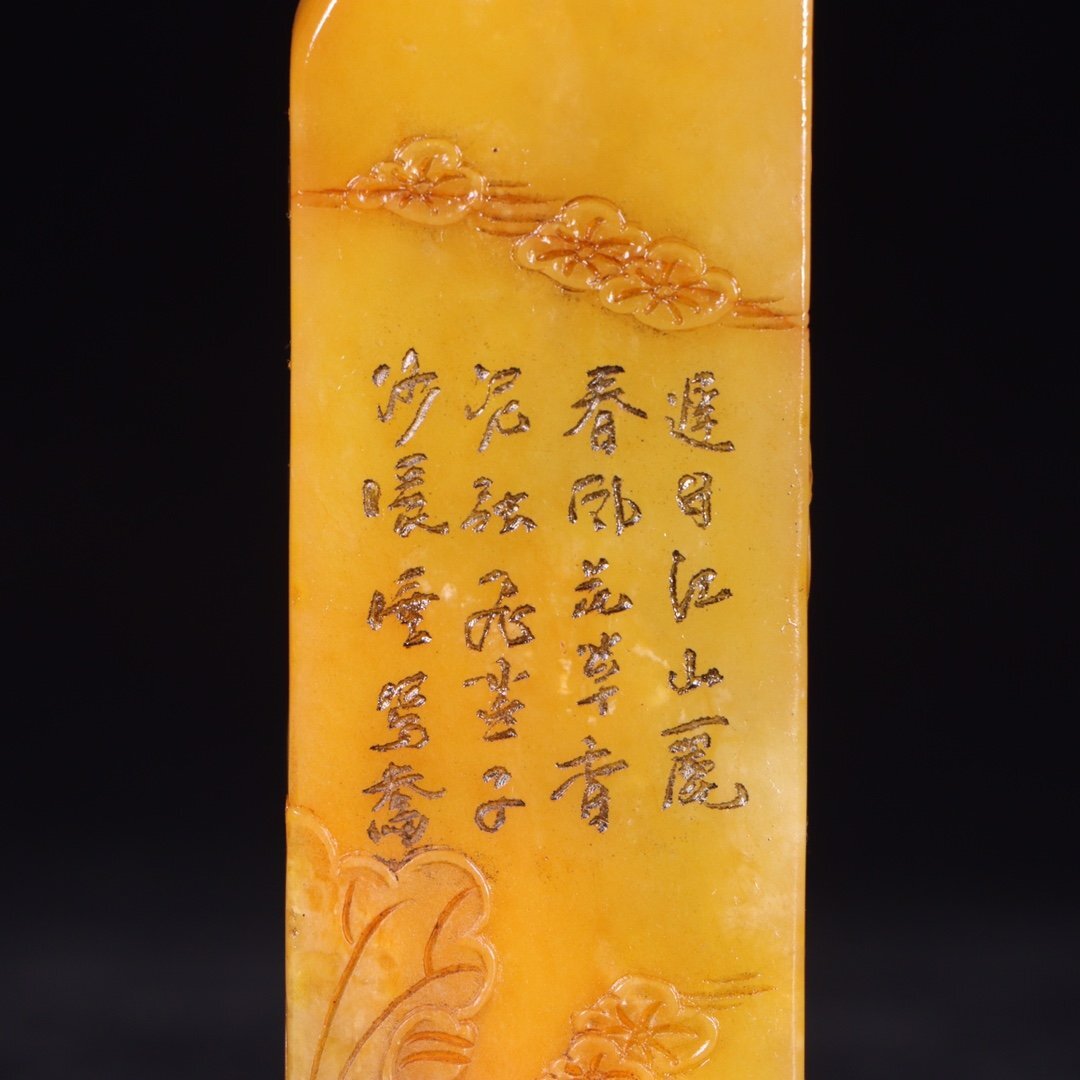 遲日江山麗
春風花草香
泥融飛燕子
沙暖睡鴛鴦